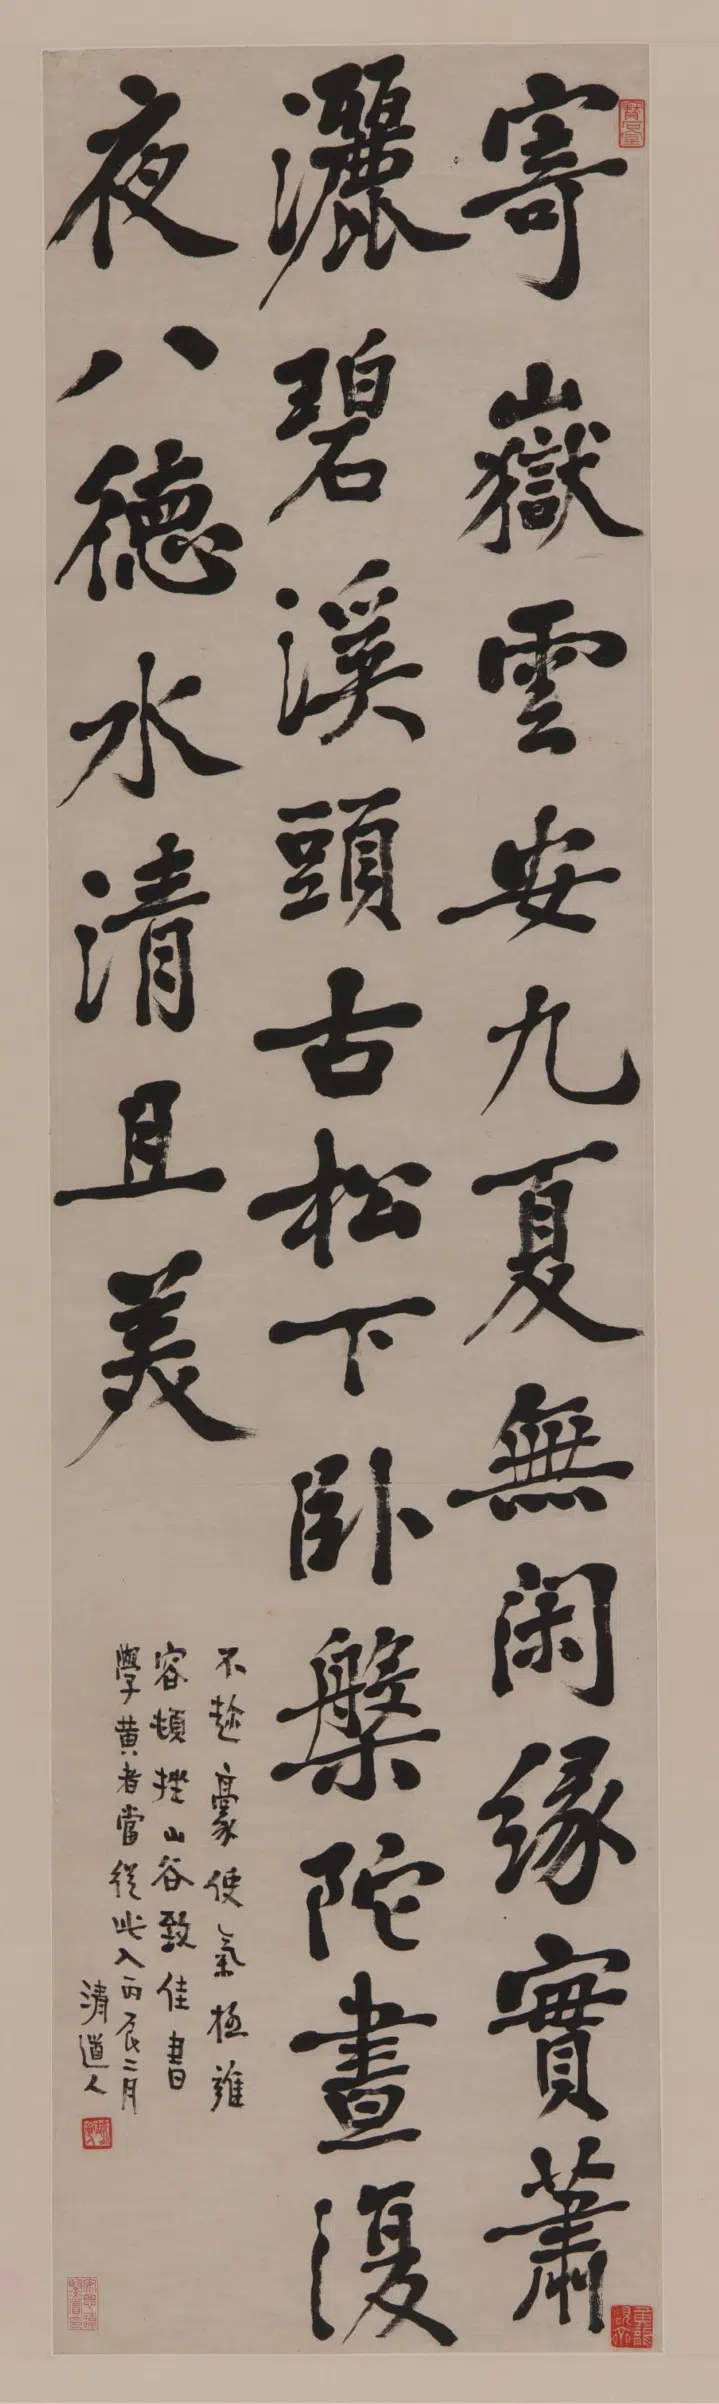 寄嶽雲安九夏無閑緣實蕭
灑碧溪頭古松下臥槃陀晝復
夜八德水清且美
不趁豪使氣極雍
容頓挫山谷致佳書
學黃者當從此入丙辰二月
清道人